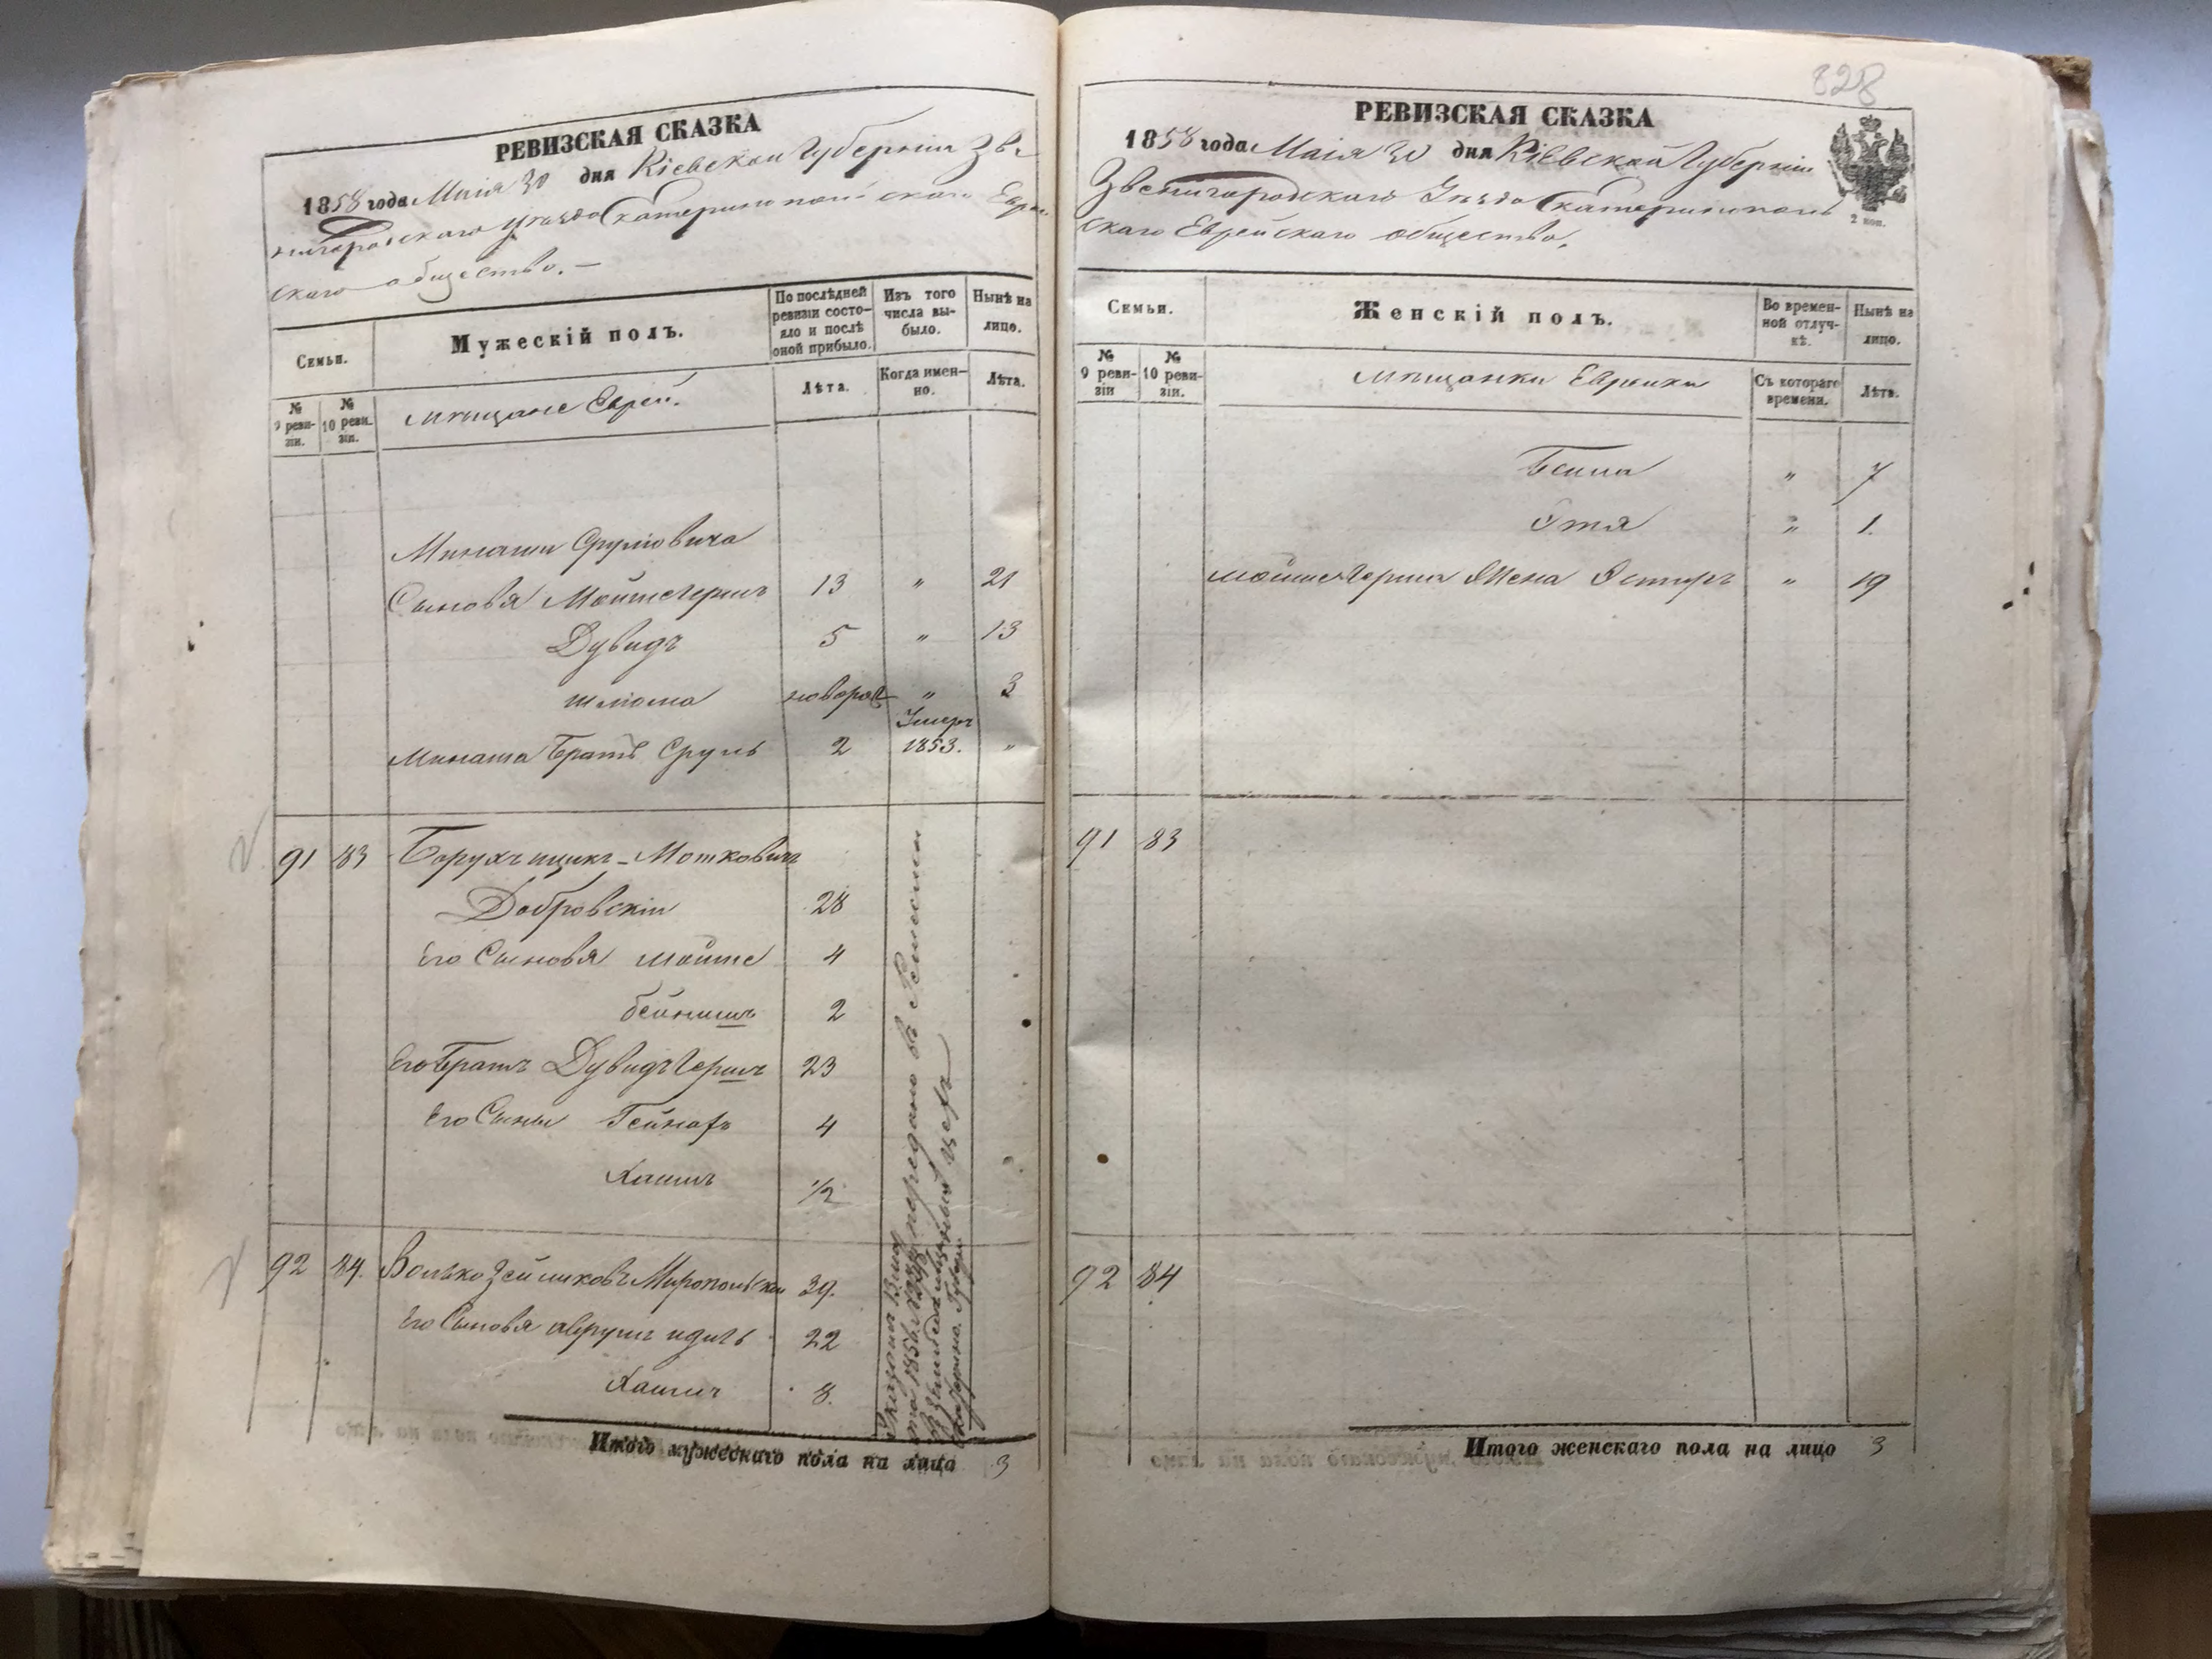 РЕВИЗСКАЯ СКАЗКА
1858 года Маія 30 дня Кіевской Губерніи Зве-
нигородскаго Уѣзда Екатеринопольскаго Еврей-
скаго общества. —
Семьи.
Мужескій полъ.
По послѣдней ревизіи состо-яло и послѣ оной прибыло.
Изъ того числа вы-было.
Нынѣ на лицо.
№ 9 реви-зіи.
№ 10 реви-зіи.
мѣщане Евреи.
Лѣта.
Когда имен-но.
Лѣта.
Минаши Сруловича
Сыновья Мойше Гершъ 13 " 21
Дувидъ 5 " 13
Шлiома новорож " 3
Минаша Братъ Сруль 2 Умеръ 1853. "
91 83 Борухъ ицикъ - Мотковичъ
Добровскій 28
его Сыновья мойше 4
бейнишъ 2
его Братъ Дувидъ Гершъ 23
его Сыны 4
Хаимъ 1/2
92 84. Волько Зейликовъ Миропольскій 39.
его Сыновья аврумъ идель 22
Хаимъ 8.
Итого мужескаго пола на лицо 3
828
РЕВИЗСКАЯ СКАЗКА
1858 года Маія 30 дня Кіевской Губерніи
Звенигородскаго Уѣзда Екатеринополь
скаго Еврейскаго общества.
2 коп.
Семьи.
Женскій полъ.
Во времен-ной отлуч-кѣ.
Нынѣ на лицо.
№ 9 реви-зіи
№ 10 реви-зіи.
мѣщанки Еврейки
Съ котораго времени.
Лѣта.
Бейла " 7
Этя " 1.
мойше Герша Жена Эстеръ " 19
91 83
92 84
Итого женскаго пола на лицо 3